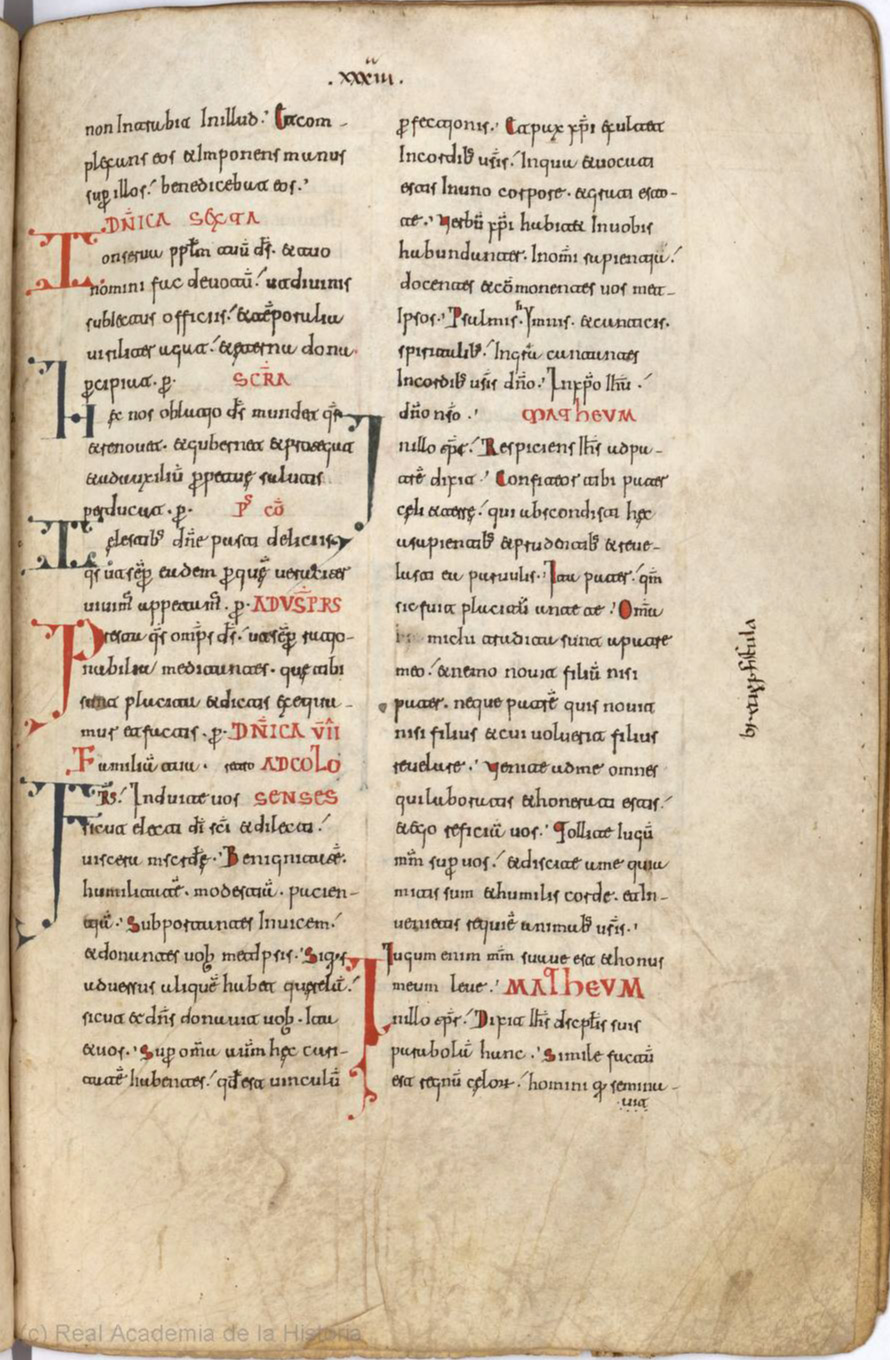 .xxxiiii.
non Intrabit In illud. Et com-
plexans eos et Imponens manus
sup̄ illos. benedicebat eos.
DN̄ICA SEXTA
Conserua pplm̄ tuū ds̄. et tuo
nomini fac deuotū. ut diuinis
subiectus officiis. et tēporalia
uiriliter et eterna dona
p̄cipiat. p̄. SCR̄A
Hec nos oblatio ds̄ mundet qs̄
et renouet. et gubernet et protegat
et ad auxiliū p̄petue salutis
perducat. p̄. P̄S CŌ
Celestib; dn̄e pasti deliciis
qs̄ ut sēp̄ eadem p̄ que ueraciter
uiuim̄ appetam̄. p̄. AD VSP̄RS
Presta qs̄ omp̄s ds̄. ut sēp̄ ratio-
nabilia meditantes. que tibi
sunt placita et dictis exequa-
mur et factis. p̄. DN̄ICA VII
Familiā tuā. AD COLO
FR̄S. Induite uos SENSES
sicut electi dī sc̄i et dilecti.
uiscera mscrd̄e. Benignitatē.
humilitatē. modestiā. pacien-
tiā. Subportantes Inuicem.
et donantes uob̄ metipsis. Siqs
aduersus aliquē habet querelā.
sicut et dn̄s donauit uob̄. Ita
et uos. Sup̄ om̄a hec cari-
tatē habentes. qd̄ est uinculū
p̄fectionis. Et pax xp̄i exultet
In cordib; ur̄is. In qua et uocati
estis In uno corpore. et grati esto-
te. Uerbū xp̄i habitet In uobis
habundanter. In om̄i sapientiā.
docentes et cōmonentes uos met-
Ipsos. Psalmis. Ymnis. et canticis.
spiritalib;. In gr̄a cantantes
In cordib; ur̄is dn̄o. In xp̄o Ihū.
dn̄o nr̄o. MATHEVM
In illo tp̄re. Respiciens Ihs̄ ad pa-
trē dixit. Confiteor tibi pater
celi et terre. qui abscondisti hec
a sapientib; et prudentib; et reue-
lasti ea paruulis. Ita pater. qm̄
sic fuit placitū ante te. Om̄ia
michi tradita sunt a patre
meo. et nemo nouit filiū nisi
pater. neque patrē quis nouit
nisi filius et cui uoluerit filius
reuelare. Uenite ad me omnes
qui laboratis et honerati estis.
et ego reficiā uos. Tollite Iugū
mm̄ sup̄ uos. et discite a me quia
mitis sum et humilis corde. et In-
uenietis requiē animab; ur̄is.
Iugum enim mm̄ suaue est et honus
meum leue. MATHEVM
In illo tp̄re. Dixit Ihs̄ discpl̄is suis
parabolā hanc. Simile factū
est regnū celor. homini q̄ semina-
uit
(c) Real Academia de la Historia